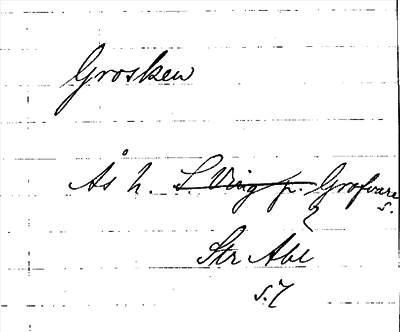 Grosken
Ås h. S. Ving fr. Grofvare
s.
Str Abl
s. 7